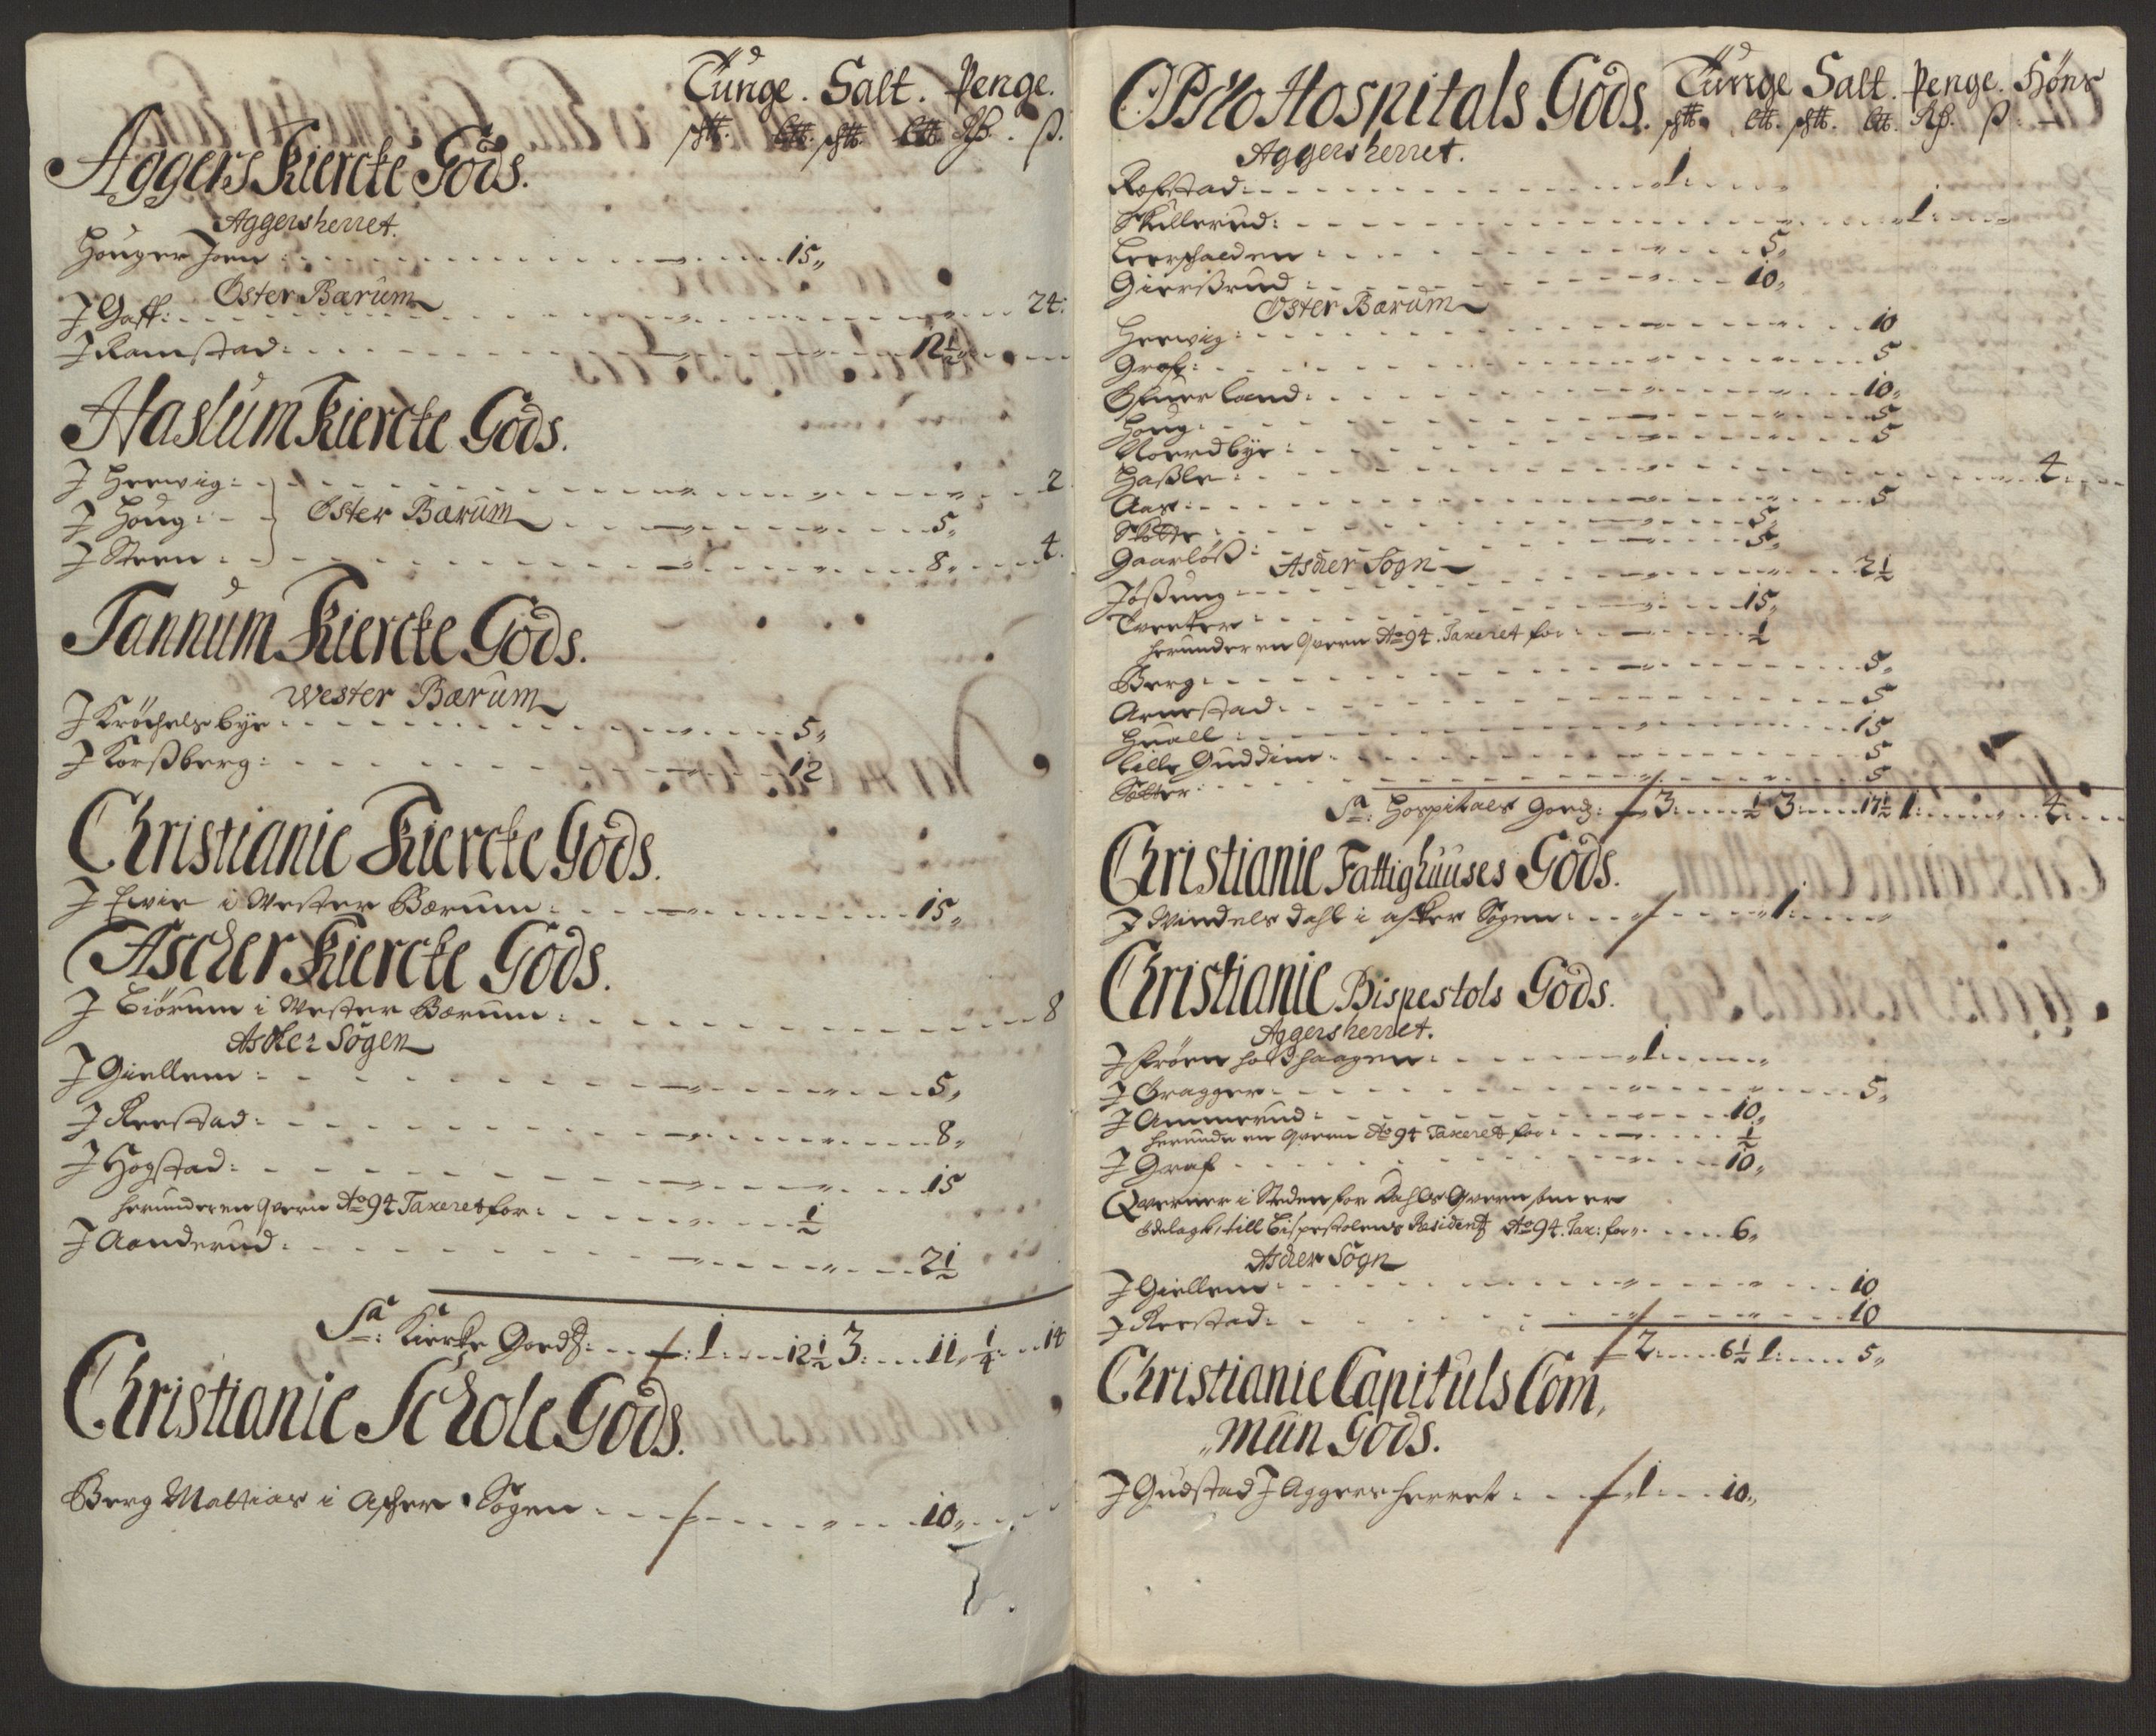 Tunge. Salt. Penge.
Aggers Kiercke Gods.
Aggersherret.
Houger Joen: 15,,
Øster Bærum
J Gaff: 24:
J Ramstad: 12½
Haslum Kiercke Gods.
J Herwig: 2
J Houg: Øster Bærum 5,
J Steen: 8, 4.
Tannum Kiercke Gods.
Wester Bærum
J Kröchelsbye 5,,
J Korßberg: 12
Christianie Kiercke Gods.
J Ewie i Wester Bærum: 15,,
Ascher Kiercke Gods.
J Biörum i Wester Bærum: 8
Asker Sogen
J Giellem: 5,
J Reestad: 8,
J Hogstad: 15
herunder en Qvern Ao 94 Taxeret for: ½
J Aanderud: 2½
Sa: Kierke Godß: 1: 12½ 3: 11,¼: 14
Christianie Schole Gods.
Berg Mattias i Ascher Sogen 10,,
Opslo Hospitals Gods. Tunge Salt. Penge. Höns
Aggersherret.
Refstad: 1:
Skullerud: 1:
Leerschalden: 5,
Gierßrud: 10,
Øster Bærum
Herwig: 10
Graf: 5
Øfuerland: 10,
Houg: 5
Noerdbye: 5
Haßle: 4
Aas: 5
Skotte: 5,
Gaarlöß: 5,
Ascher Sogn
Jößung 2½
Tveeter 15,
herunder en Qvern Ao 94. Taxeret for: ½
Berg: 5,
Arnestad: 5
Huall: 15
Lille Guddim: 5
Sætter: 5
Sa: Hospitals Godß: 3: ½ 3: 17½ 1: 4
Christianie Fattighuuses Gods.
J Windelsdahl i Asker Sogen: 1:
Christianie Bispestols Gods.
Aggersherret.
J Fröen hoß haagen: 1:
J Bragger: 5,
J Ammerud: 10,
herunder en Qvern Ao 94 Taxeret for: ½
J Graf 10,
Qverner i Steden for Dahls Qvern som er
ödelagt, till Bispestolens Residentz Ao 94. Tax: for,, 6,
Ascher Sogn
J Giellem: 10
J Reestad: 10
2: 6½ 1: 5,,
Christianie Capituls Com,
,,mün Gods.
J Gudstad J Aggers herret: 1: 10,,